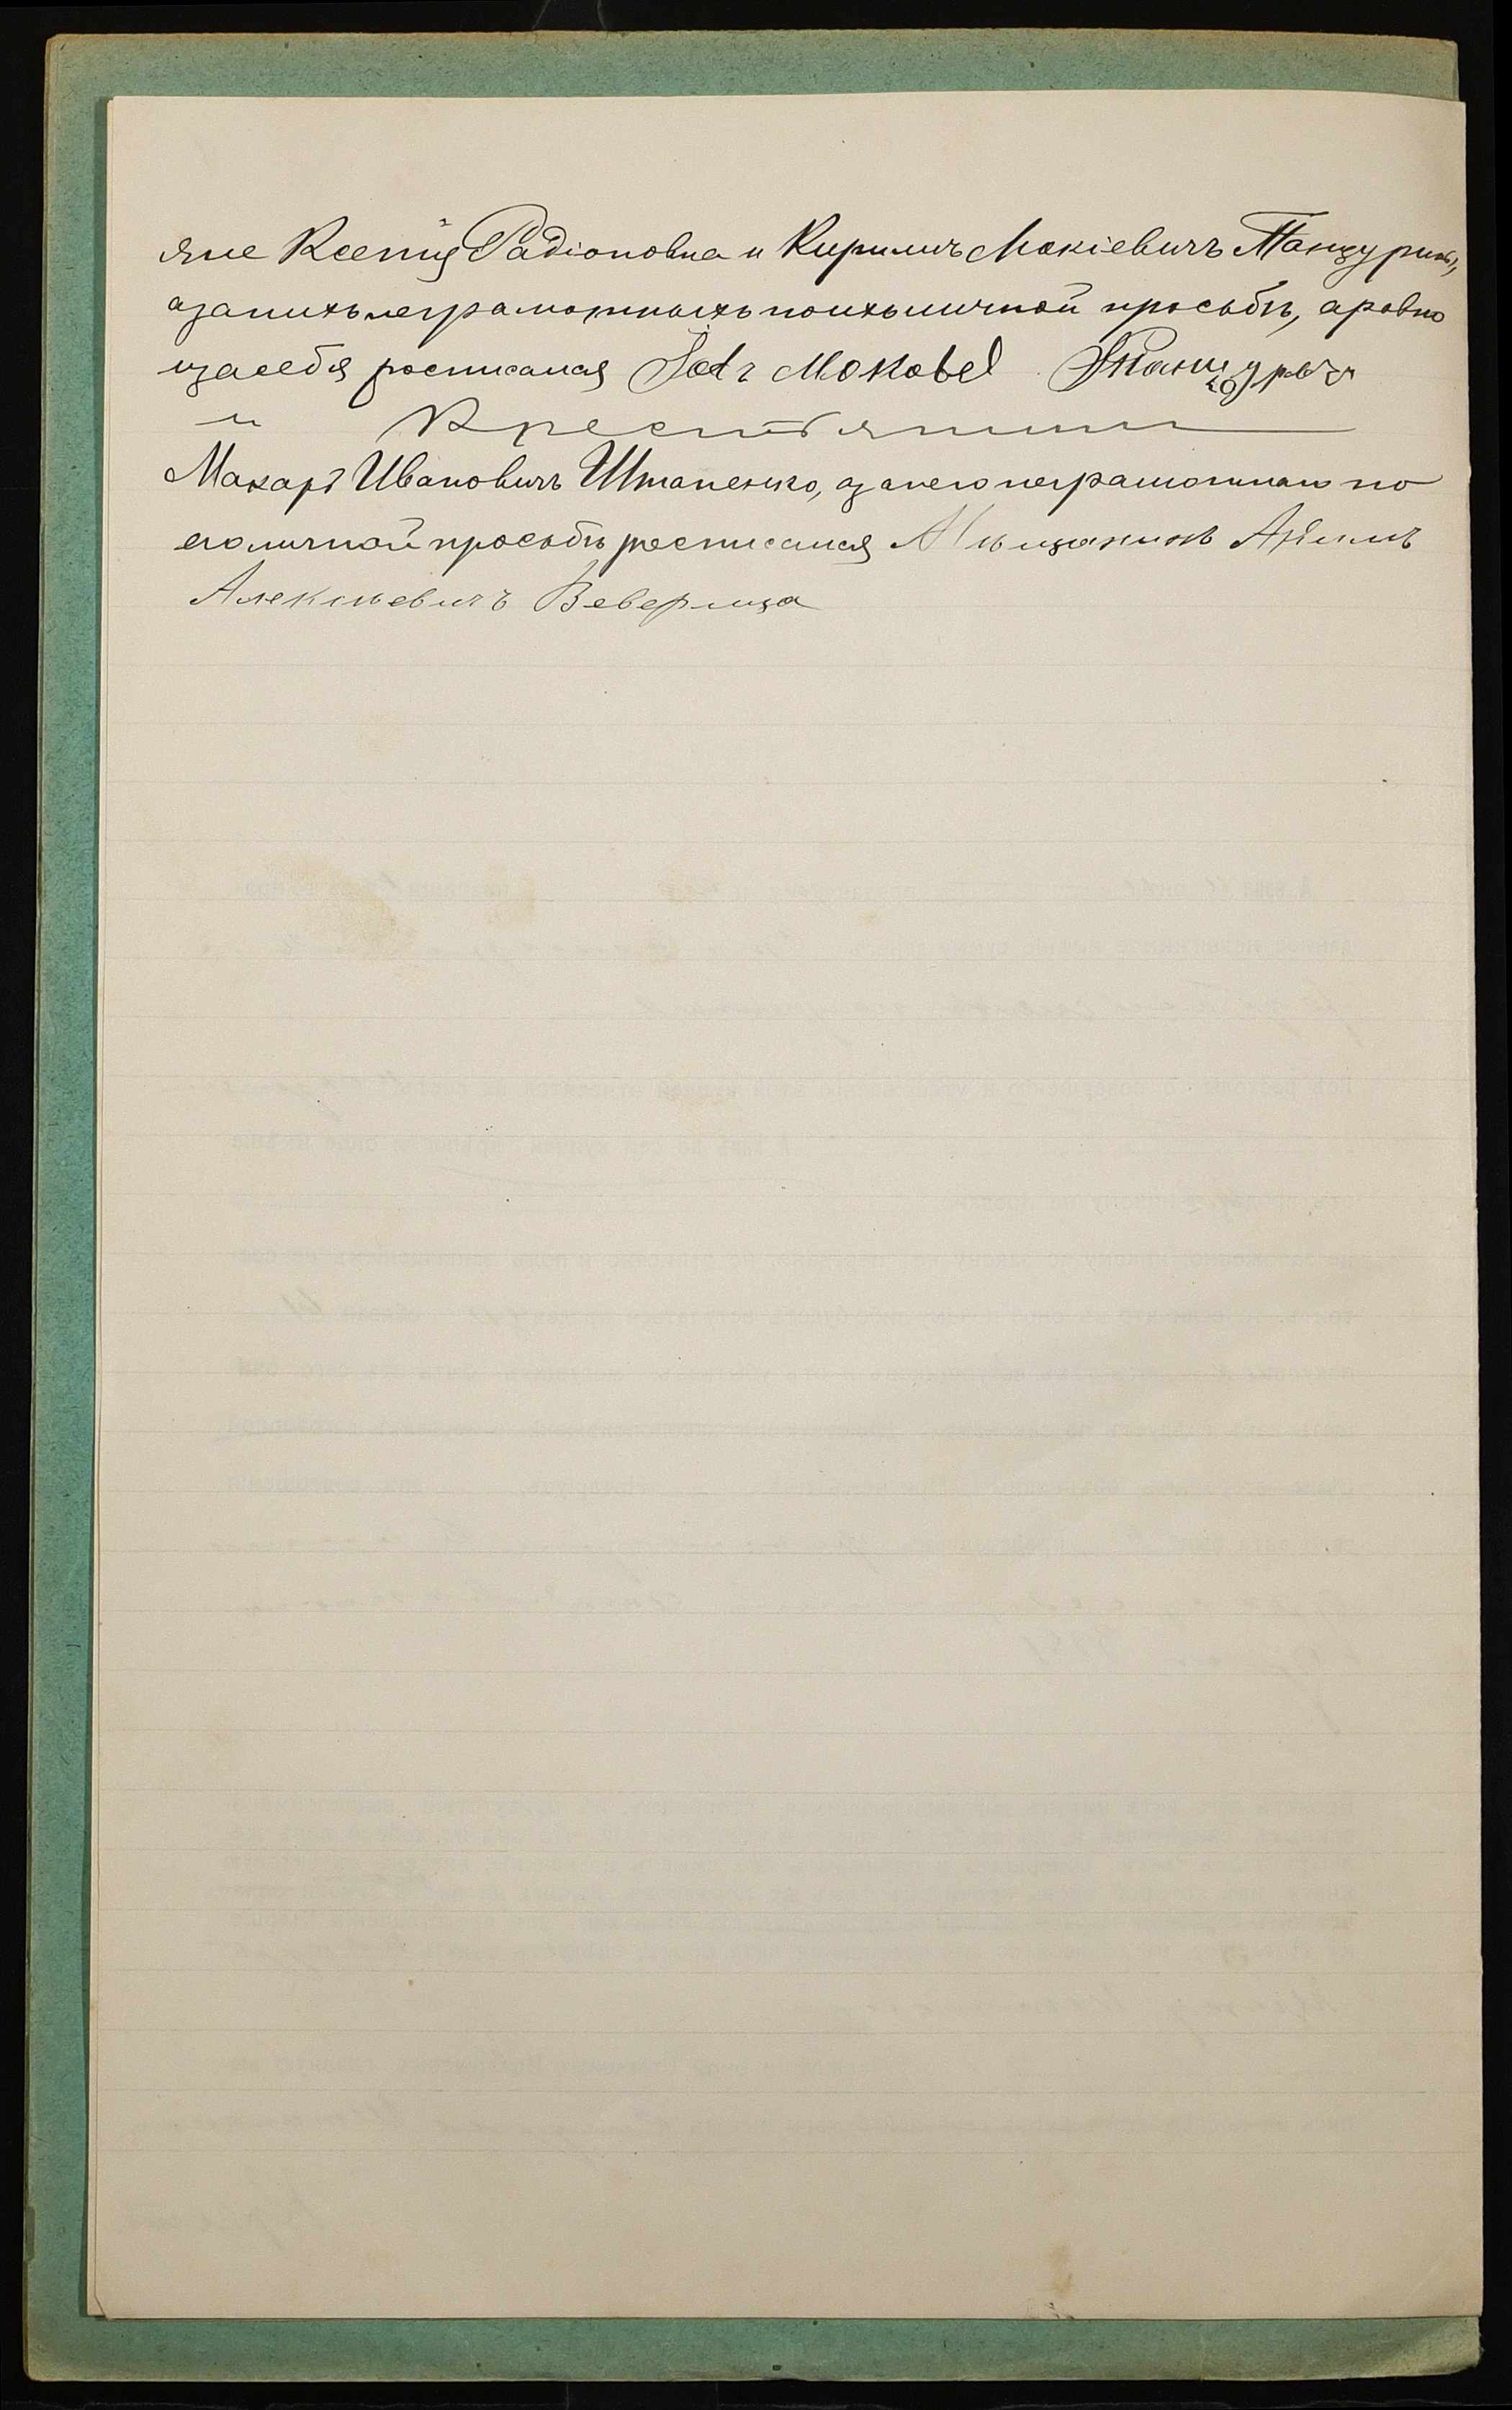 яне Ксенія Радіоновна и Кириллъ Мокіевичъ Танцуры,
а за нихъ неграмотныхъ по ихъ личной просьбѣ, а равно
и за себя росписался Мокавеl Танцуръ
и Крестьянинъ
Макаръ Ивановичъ Штапенко, а за него неграмотнаго по
его личной просьбѣ росписался Мѣщанинъ
Алексѣевичъ Веверица